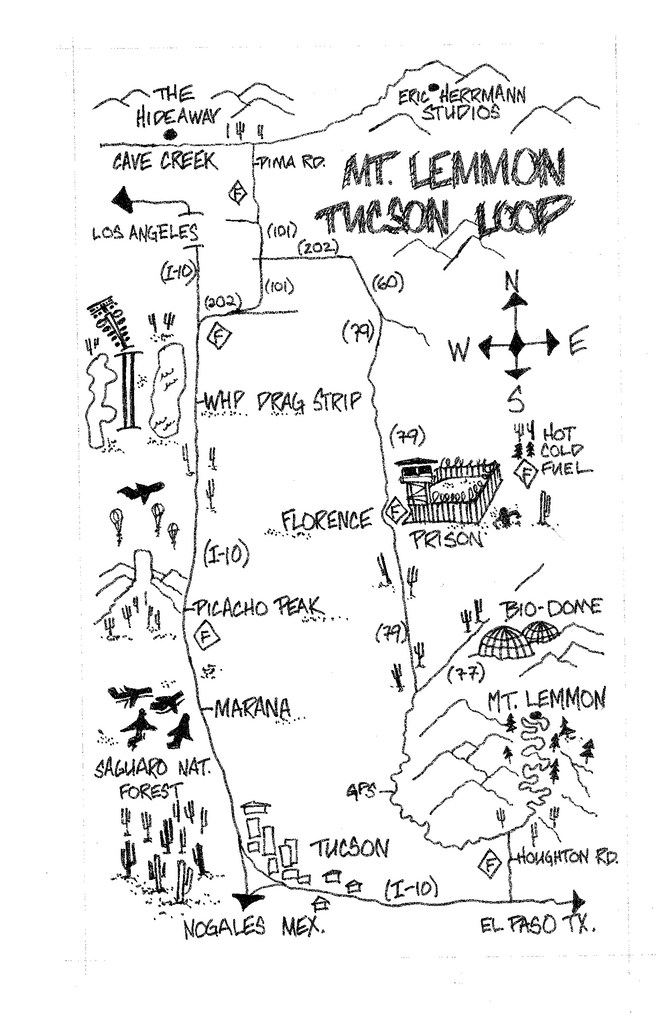 THE
HIDEAWAY
ERIC HERRMANN
STUDIOS
CAVE CREEK
PIMA RD.
MT. LEMMON
TUCSON LOOP
F
LOS ANGELES
(101)
(202)
(I-10)
(101)
(202)
(60)
F
(79)
N
W
E
S
WHP DRAG STRIP
(79)
HOT
COLD
F FUEL
FLORENCE
F
PRISON
(I-10)
PICACHO PEAK
F
BIO-DOME
(79)
(77)
MARANA
MT. LEMMON
SAGUARO NAT.
FOREST
GPS
TUCSON
F
HOUGHTON RD.
(I-10)
NOGALES MEX.
EL PASO TX.